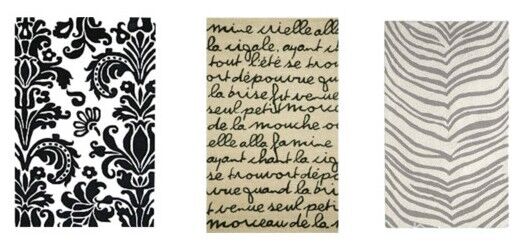 mine crielle alla
la cigale, ayant c
tout l'été se trouv
ort dépouvue que
la brise fut venue
seul petit morceau
de la mouche ou
elle alla famine
ayant chant la cig
se trouvort dépou
vue quand la bris
t venue seul petit
morceau de la m